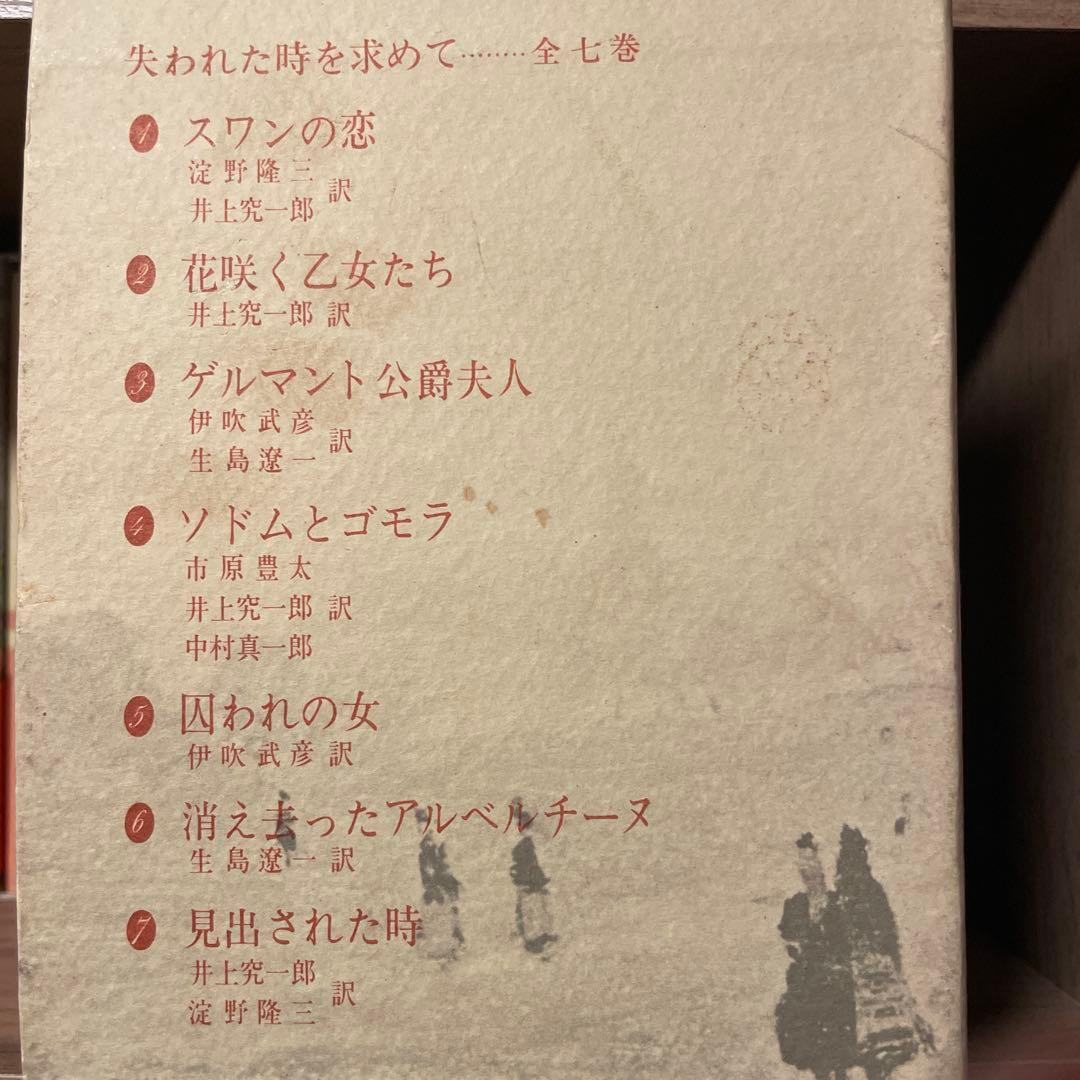 失われた時を求めて………全七巻
1 スワンの恋
淀野隆三
井上究一郎 訳
2 花咲く乙女たち
井上究一郎 訳
3 ゲルマント公爵夫人
伊吹武彦
生島遼一 訳
4 ソドムとゴモラ
市原豊太
井上究一郎 訳
中村真一郎
5 囚われの女
伊吹武彦 訳
6 消え去ったアルベルチーヌ
生島遼一 訳
7 見出された時
井上究一郎
淀野隆三 訳